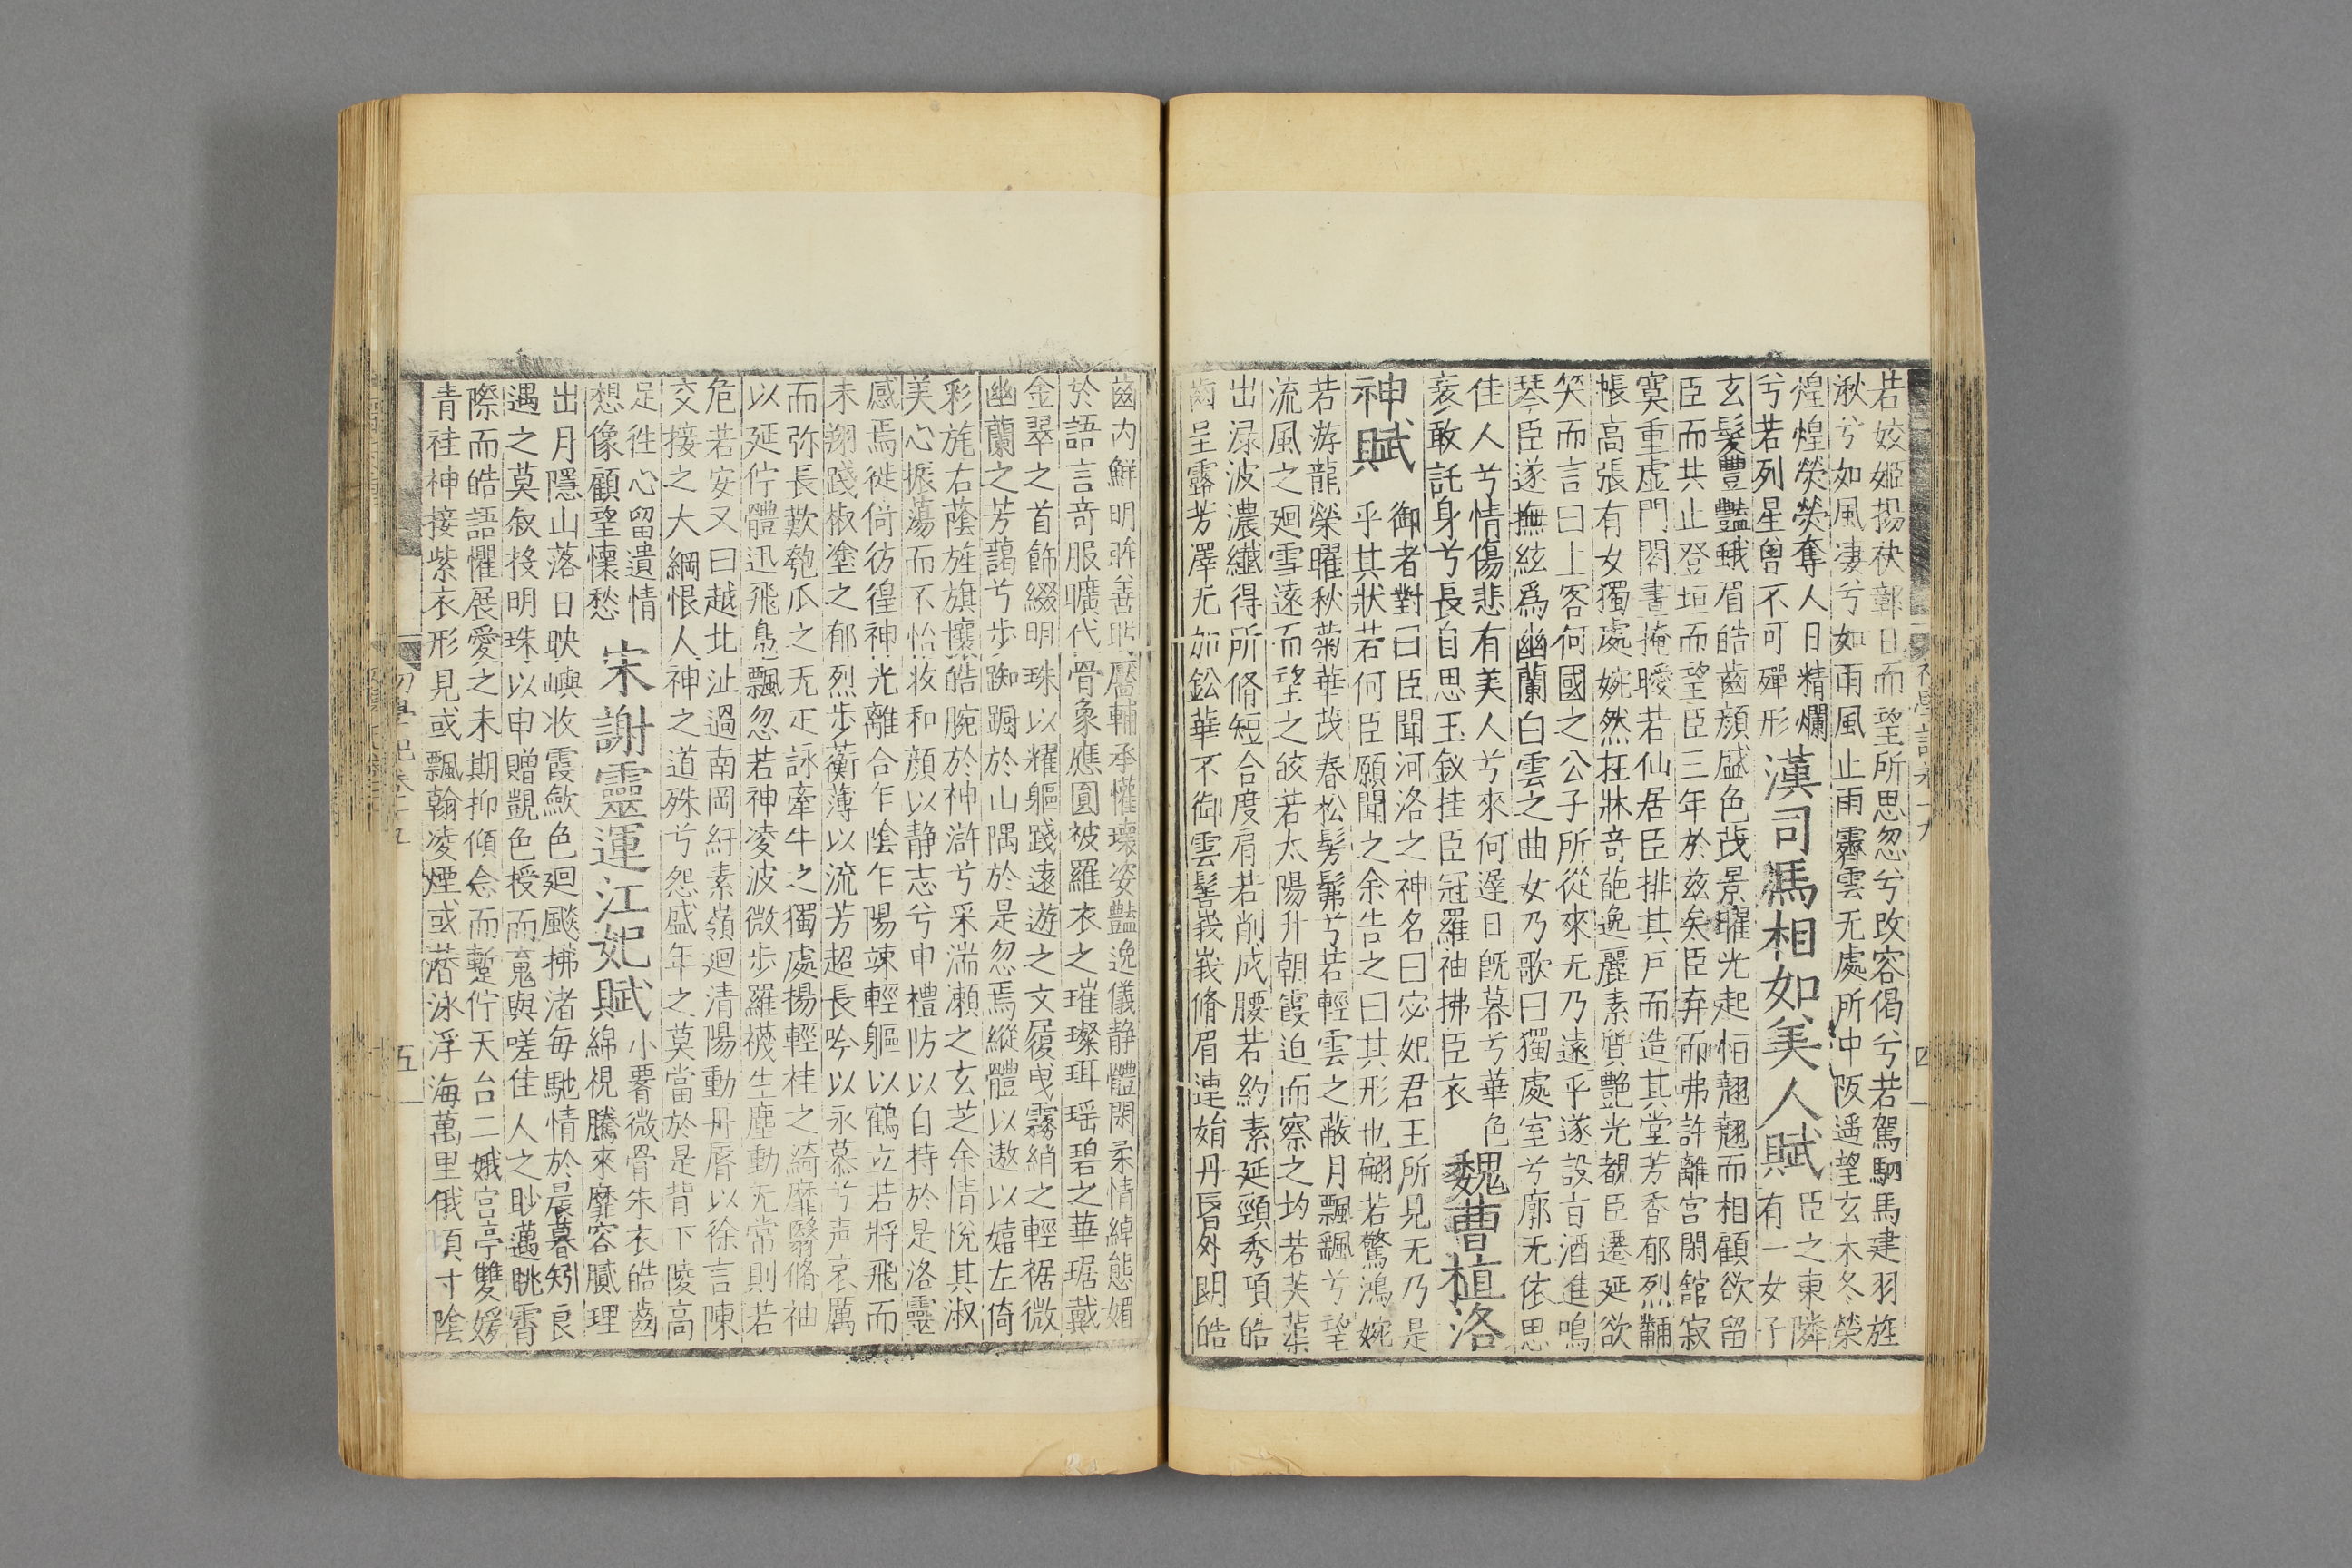 若姣姬揚袂鄣日而望所思忽兮改容偈兮若駕駟馬建羽旌
湫兮如風凄兮如雨風止雨霽雲无處所中阪遥望玄木冬榮
煌煌熒熒奪人日精爛
兮若列星曽不可殫形
漢司馮相如美人賦
臣之東隣
有一女子
玄髮豐豔蛾眉皓齒顔盛色茂景曜光起恒翹翹而相顧欲留
臣而共止登垣而望臣三年於兹矣臣弃而弗許離宫閑舘寂
寞重虚門閤晝掩曖若仙居臣排其戶而造其堂芳香郁烈黼
帳高張有女獨處婉然在牀竒葩逸麗素質艶光覩臣遷延欲
笑而言曰上客何國之公子所從來无乃遠乎遂設旨酒進鳴
琴臣遂撫絃爲幽蘭白雲之曲女乃歌曰獨處室兮廓无依思
佳人兮情傷悲有美人兮來何遲日旣暮兮華色
衰敢託身兮長自思玉釵挂臣冠羅袖拂臣衣
魏曹植洛
神賦
御者對曰臣聞河洛之神名曰宓妃君王所見无乃是
乎其狀若何臣願聞之余告之曰其形也翩若驚鴻婉
若游龍榮曜秋菊華茂春松髣髴兮若輕雲之蔽月飄飖兮望
流風之廻雪遠而望之皎若太陽升朝霞迫而察之灼若芙蕖
出渌波濃纎得所脩短合度肩若削成腰若約素延頸秀項皓
齒呈露芳澤无加鈆華不御雲髻峩峩脩眉連娟丹唇外朗皓
初學記卷十九
四
齒内鮮明眸善睐靨輔承懽瓌姿豔逸儀静體閑柔情綽態媚
於語言竒服曠代骨象應圎被羅衣之璀璨珥瑶碧之華琚戴
金翠之首飾綴明珠以耀軀踐遠遊之文履曵霧綃之輕裾微
幽蘭之芳藹兮步踟蹰於山隅於是忽焉縱體以遨以嬉左倚
彩旄右蔭旌旗攘皓腕於神滸兮采湍瀨之玄芝余情悅其淑
美心振蕩而不怡收和顔以静志兮申禮防以自持於是洛靈
感焉徙倚彷徨神光離合乍陰乍陽竦輕軀以鶴立若將飛而
未翔踐椒塗之郁烈步蘅薄以流芳超長吟以永慕兮声哀厲
而弥長歎匏瓜之无疋詠牽牛之獨處揚輕袿之綺靡翳脩袖
以延佇體迅飛鳧飄忽若神凌波微步羅襪生塵動无常則若
危若安又曰越北沚過南岡紆素嶺廻清陽動丹脣以徐言陳
交接之大綱恨人神之道殊兮怨盛年之莫當於是背下陵高
足徃心留遺情
想像顧望懷愁
宋謝靈運江妃賦
小䙲微骨朱衣皓齒
綿視騰來靡容膩理
出月隱山落日映嶼收霞歛色廻飈拂渚每馳情於晨暮矧良
遇之莫叙投明珠以申贈覬色授而䰟與嗟佳人之眇邁眺霄
際而皓語懼展愛之未期抑傾念而蹔佇天台二娥宫亭雙媛
青袿神接紫衣形見或飄翰凌煙或潜泳浮海萬里俄頃寸陰
初學記卷十九
五